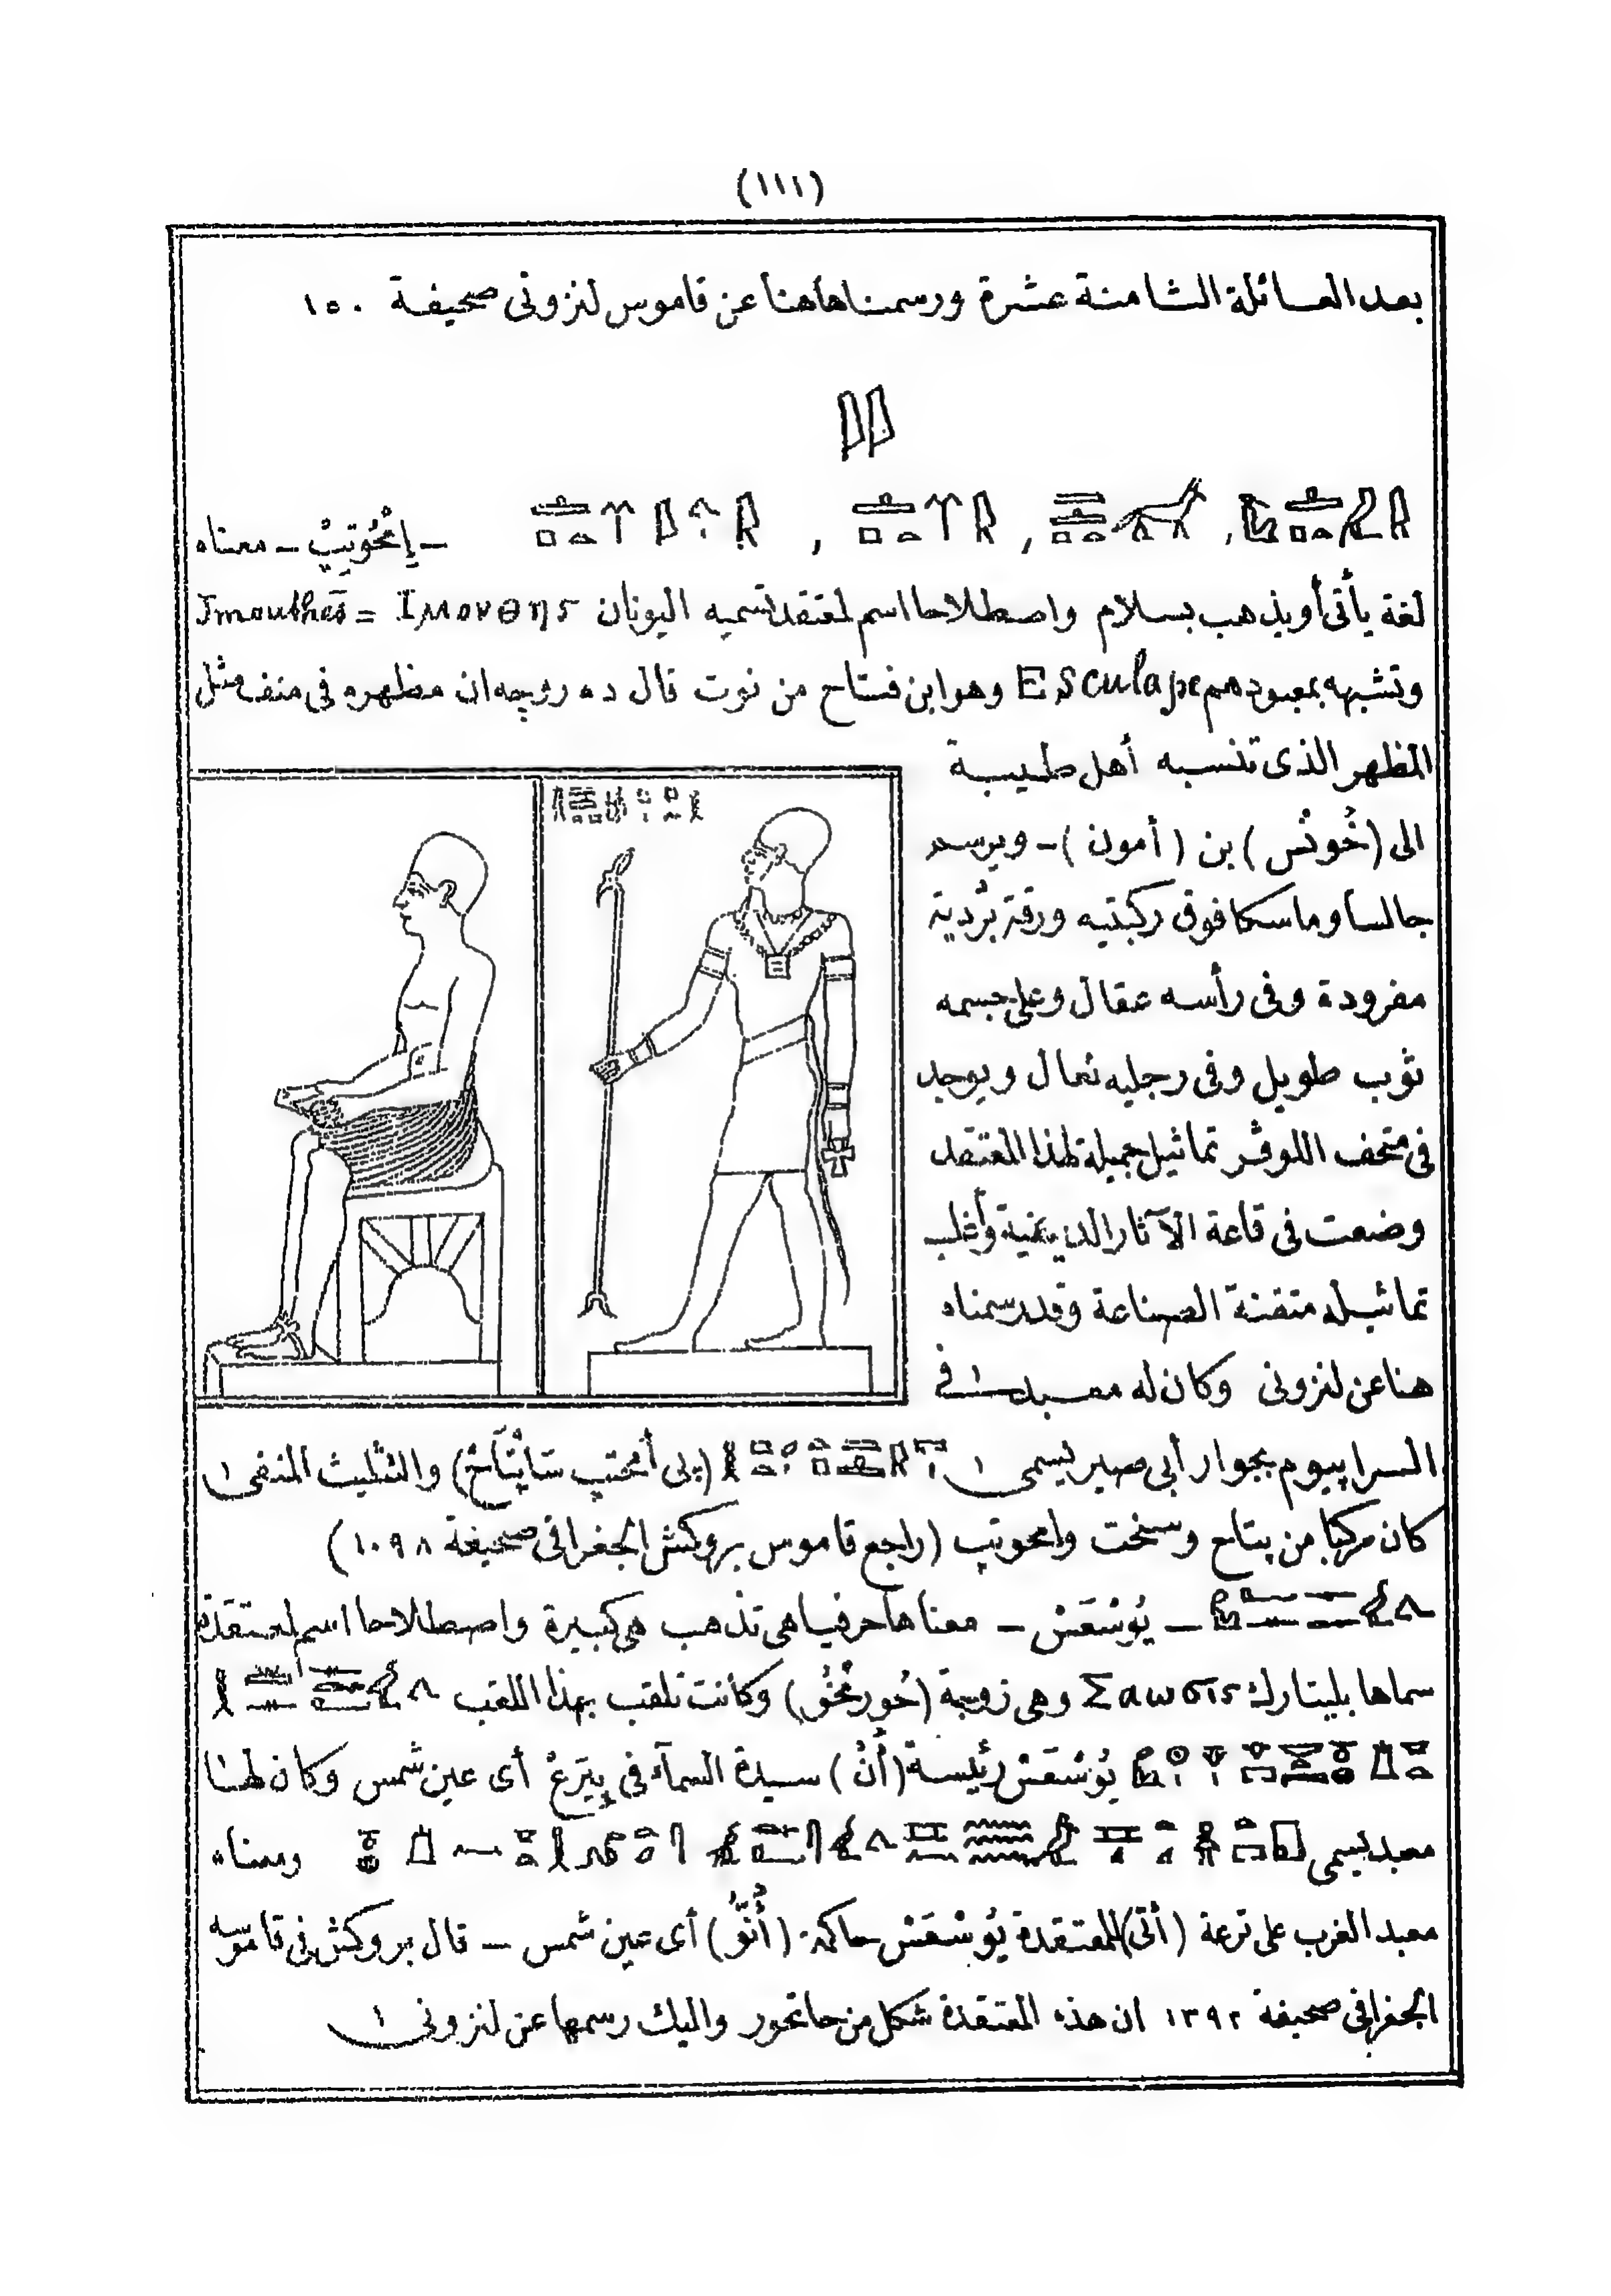 (١١١)
بعد العائلة الثامنة عشرة ورسمناها هنا عن قاموس لنزونى صحيفة ١٥٠
– إِمْحُوتِبْ – معناه
لغة يأتى أو يذهب بسلام واصطلاحا اسم لمعتقد تسميه اليونان Imouthes = Ιμουθης
وتشبهه بمعبودهم Esculape وهو ابن فتاح من نوت قال ده روچه ان مظهره فى منف مثل
المظهر الذى تنسبه أهل طيبة
الى (خُونْس) بن (أمون) – ويرسم
جالسا وماسكا فوق ركبتيه ورقة بَرْدية
مفرودة وفى رأسه عقال وعلى جسمه
ثوب طويل وفى رجليه نعال ويوجد
فى متحف اللوڤر تماثيل جميلة لهذا المعتقد
وضعت فى قاعة الآثار الدينية وأغلب
تماثيله متقنة الصناعة وقد رسمناه
هنا عن لنزونى وكان له معبد فى
السرابيوم بجوار أبى صير يسمى (پى أمحتب سَاپْتَاحْ) والتثليث المنفى
كان مركبا من پتاح وسخت وامحوتپ (راجع قاموس بروكش الجغرافى صحيفة ١٠٩٨)
– يُوسْعَسْ – معناها حرفيا هى تذهب هى كبيرة واصطلاحا اسم لمعتقدة
سماها بليتارك Σαωσις وهى زوجة (حُورمْخُو) وكانت تلقب بهذا اللقب
يُوسْعَسْ رئيسة (أَنُ) سيدة السمآء فى پِيَرعْ أى عين شمس وكان لها
معبد يسمى ومعناه
معبد الغرب على ترعة (أتى) للمعتقدة يُوسْعَسْ حاكمة (أَنُّو) أى عين شمس – قال بروكش فى قاموسه
الجغرافى صحيفة ١٣٩٢ ان هذه المعتقدة شكل من حاتحور واليك رسمها عن لنزونى